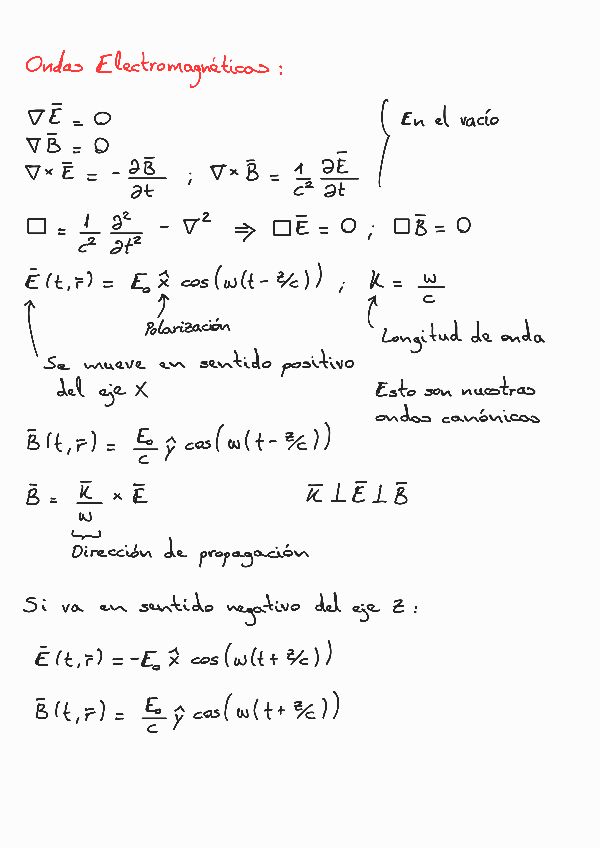 Ondas Electromagnéticas:
∇Ē = 0
En el vacío
∇B̄ = 0
∇×Ē = -∂B̄/∂t ; ∇×B̄ = 1/c² ∂Ē/∂t
□ = 1/c² ∂²/∂t² - ∇² ⇒ □Ē = 0 ; □B̄ = 0
Ē(t, r̄) = E₀ x̂ cos(ω(t - z/c)) ; K = ω/c
Polarización
Longitud de onda
Se mueve en sentido positivo
del eje X
Esto son nuestras
ondas canónicas
B̄(t, r̄) = E₀/c ŷ cos(ω(t - z/c))
B̄ = K̄/ω × Ē K̄ ⊥ Ē ⊥ B̄
Dirección de propagación
Si va en sentido negativo del eje z:
Ē(t, r̄) = -E₀ x̂ cos(ω(t + z/c))
B̄(t, r̄) = E₀/c ŷ cos(ω(t + z/c))